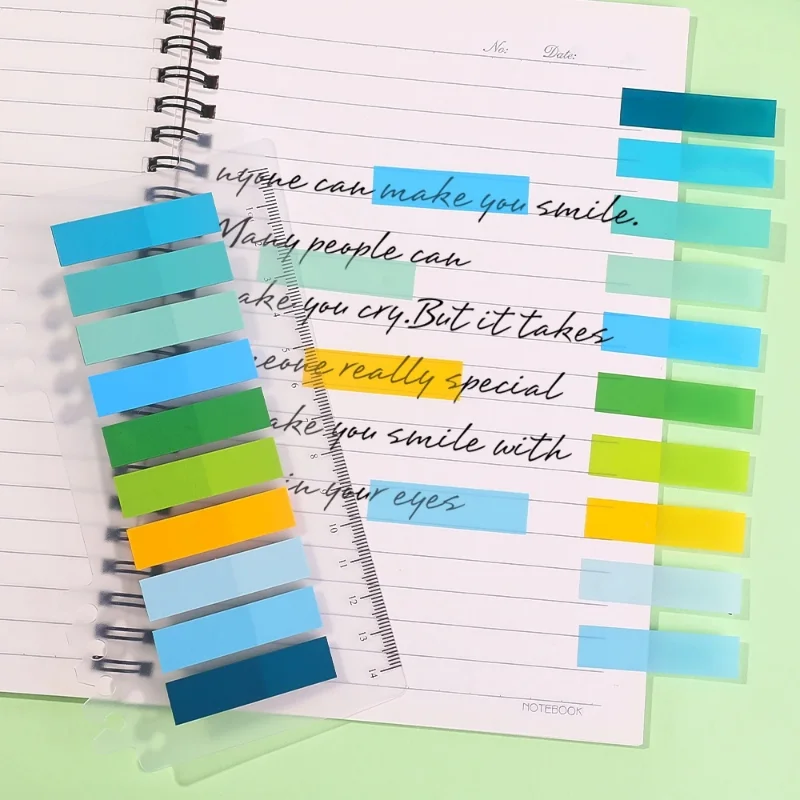 No: Date:
nyone can make you smile.
Many people can
ake you cry.But it takes
eone really special
ake you smile with
in your eyes
5
6
8
10
11
12
13
14
NOTEBOOK